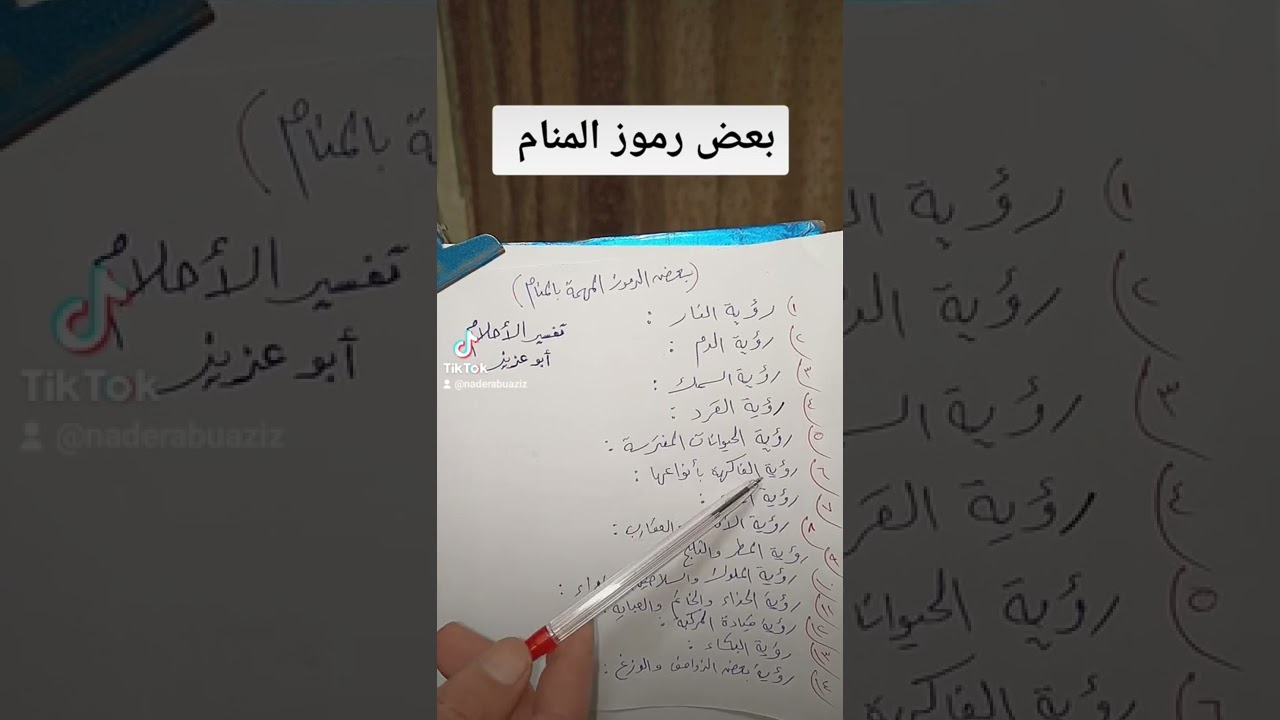 بعض رموز المنام
(بعض الرموز المهمة بالمنام)
تفسير الأحلام
أبو عزيز
TikTok
@naderabuaziz
١) رؤية النار :
٢) رؤية الدم :
٣) رؤية السمك :
٤) رؤية القرد :
٥) رؤية الحيوانات المفترسة :
٦) رؤية الفاكهة بأنواعها :
٧) رؤية
٨) رؤية والعقارب :
٩) رؤية المطر والثلج
رؤية الملوك
رؤية الحذاء والخاتم والعباية :
رؤية قيادة المركبة :
رؤية البكاء :
رؤية بعض الزواحف والوزغ :